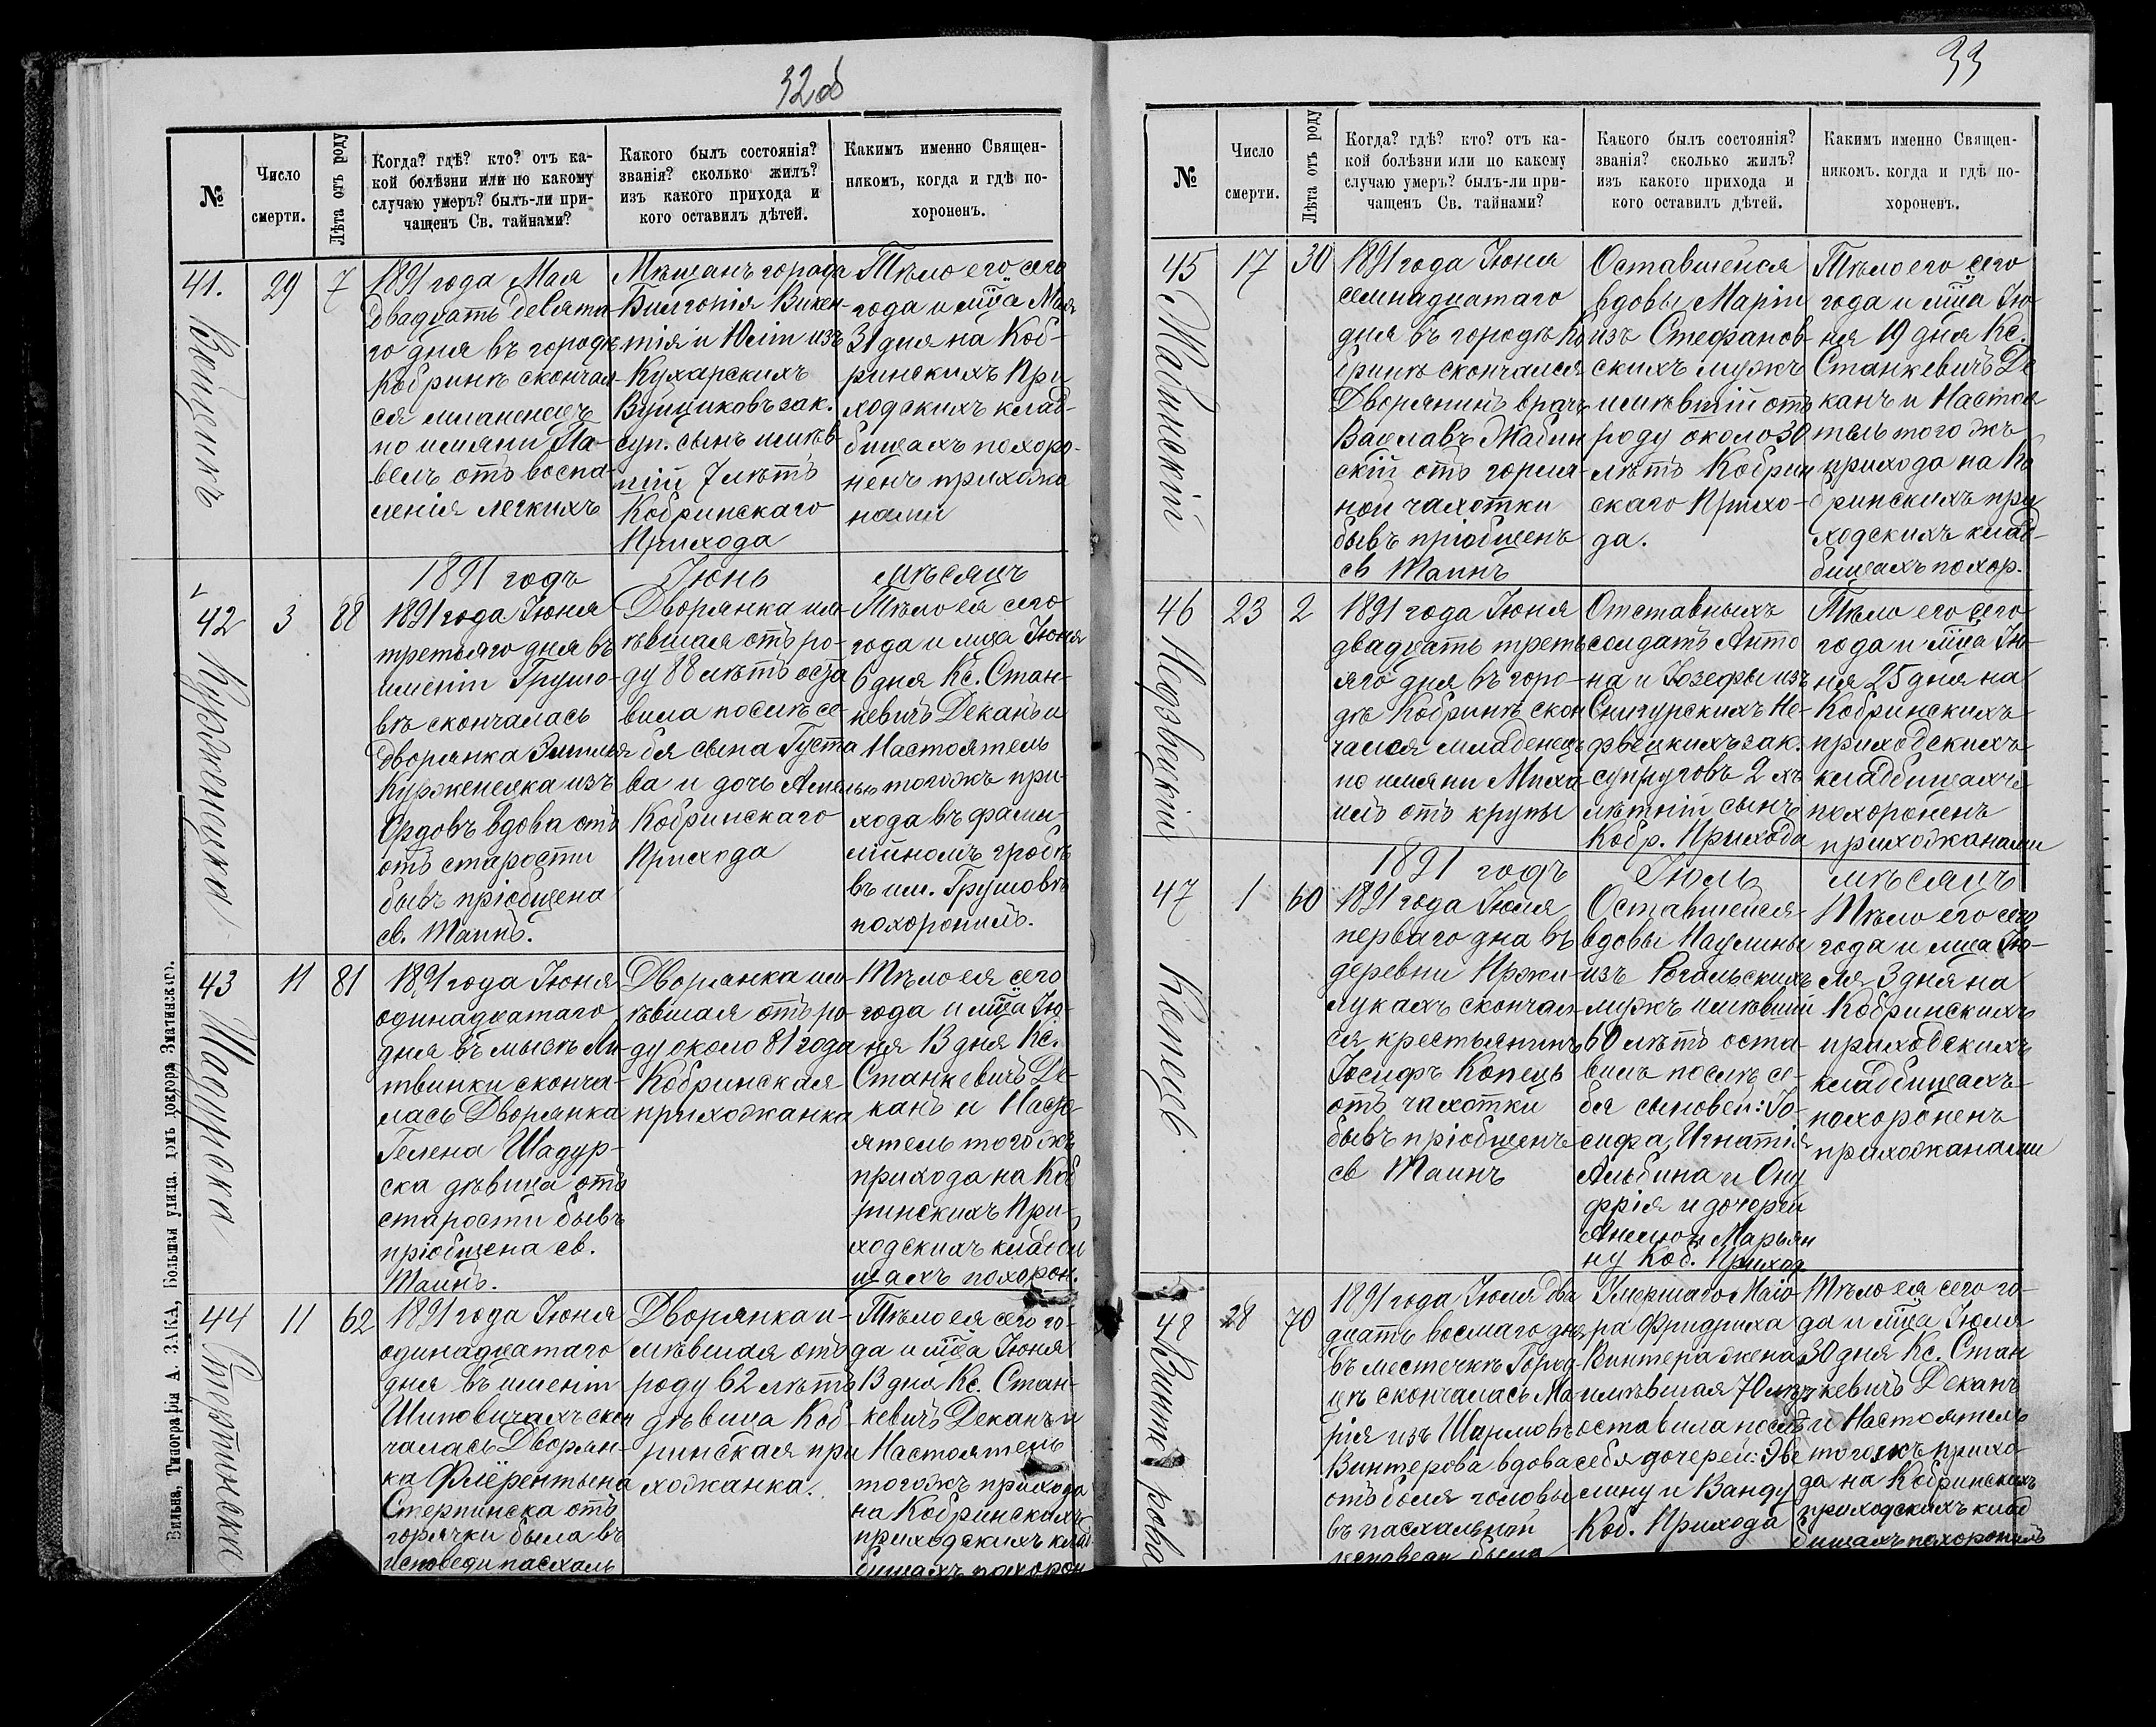 32об
№
Число
смерти.
Лѣта отъ роду
Когда? гдѣ? кто? отъ ка-
кой болѣзни или по какому
случаю умеръ? былъ-ли при-
чащенъ Св. тайнами?
Какого былъ состоянія?
званія? сколько жилъ?
изъ какого прихода и
кого оставилъ дѣтей.
Какимъ именно Священ-
никомъ, когда и гдѣ по-
хороненъ.
41.
29
7
1891 года Мая
двадцать девята
го дня въ городѣ
Кобринѣ скончал-
ся младенецъ
по имяни Па-
велъ отъ воспа-
ленія легкихъ
Мѣщанъ города
Билгорія Викен-
тія и Юліи изъ
Кухарскихъ
зак.
суп. сынъ имѣв-
шій 7 лѣтъ
Кобринскаго
Прихода
Тѣло его сего
года и мца Мая
31 дня на Коб-
ринскихъ При
ходскихъ клад-
бищахъ похоро-
ненъ прихожа
нами
1891 годъ Іюнь мѣсяцъ
42
3
88
1891 года Іюня
третьяго дня въ
имѣніи Грушо-
вкѣ скончалась
дворянка Эмилья
Курженецка изъ
Ордовъ вдова отъ
отъ старости
бывъ пріобщена
св. Таинъ.
Дворянка им-
ѣвшая отъ ро-
ду 88 лѣтъ оста
вила послѣ се-
бя сына Густа
ва и дочь Амелью
Кобринскаго
Прихода
Тѣло ея сего
года и мца Іюня
6 дня Кс. Стан-
кевичъ Деканъ и
Настоятель
тогожъ при-
хода въ фами-
лійномъ гробѣ
въ им. Грушовкѣ
похоронилъ.
Курженецка
43
11
81
1891 года Іюня
одинадцатаго
дня въ мызѣ Ли-
твинки сконча-
лась Дворянка
Гелена Шадур-
ска дѣвица отъ
старости бывъ
пріобщена св.
Таинъ.
Дворянка им-
ѣвшая отъ ро-
ду около 81 года
Кобринская
прихожанка
Тѣло ея сего
года и мца Ію-
ня 13 дня Кс.
Станкевичъ Де-
канъ и Насто-
ятель тогожъ
прихода на Коб
ринскихъ При-
ходскихъ кладби
щахъ похорон.
Шадурска
44
11
62
1891 года Іюня
одинадцатаго
дня въ имѣніи
Шиповичахъ скон
чалась Дворян-
ка Флёрентына
Стерпинска отъ
горячки была въ
исповеди пасхаль
Дворянка и-
мѣвшая отъ
роду 62 лѣтъ
дѣвица Коб-
ринская при
хожанка.
Тѣло ея сего го-
да и мца Іюня
13 дня Кс. Стан-
кевичъ Деканъ и
Настоятель
тогожъ прихода
на Кобринскихъ
приходскихъ клад
бищахъ похорон
Стерпинска
Вильна, Типографія А. ЗАКА, Большая улица, домъ доктора Зматинскаго.
33
№
Число
смерти.
Лѣта отъ роду
Когда? гдѣ? кто? отъ ка-
кой болѣзни или по какому
случаю умеръ? былъ-ли при-
чащенъ Св. тайнами?
Какого былъ состоянія?
званія? сколько жилъ?
изъ какого прихода и
кого оставилъ дѣтей.
Какимъ именно Священ-
никомъ. когда и гдѣ по-
хороненъ.
45
17
30
Жабинскій
1891 года Іюня
семнадцатаго
дня въ городѣ Ко
бринѣ скончался
Дворянинъ врачъ
Вацлавъ Жабин
скій отъ горля-
ной чахотки
бывъ пріобщенъ
св Таинъ
Оставшейся
вдовы Маріи
изъ Стефанов-
скихъ мужъ
имѣвшій отъ
роду около 30
лѣтъ Кобрин
скаго Прихо-
да.
Тѣло его сего
года и мца Ію-
ня 19 дня Кс.
Станкевичъ Де
канъ и Настоя
тель того жъ
прихода на Ко
бринскихъ при
ходскихъ клад-
бищахъ похор.
46
23
2
1891 года Іюня
двадцать треть
яго дня въ горо-
дѣ Кобринѣ скон
чался младенецъ
по имяни Миха
илъ отъ крупы
Отставныхъ
солдатъ Анто
на и Іозефы изъ
Снигурскихъ Не-
зак.
супруговъ 2 хъ
лѣтній сынъ
Кобр. Прихода
Тѣло его сего
года и мца Ію-
ня 25 дня на
Кобринскихъ
приходскихъ
кладбищахъ
похороненъ
прихожанами
1891 годъ Іюль мѣсяцъ
47
1
60
Копецъ.
1891 года Іюля
перваго дна въ
деревни Пржи-
лукахъ скончал-
ся крестьянинъ
Іосифъ Копець
отъ чахотки
бывъ пріобщенъ
св Таинъ
Оставшейся
вдовы Паулины
изъ Рогальскихъ
мужъ имѣвший
60 лѣтъ оста-
вилъ послѣ се-
бя сыновей: Іо-
сифа, Игнатія
Альбина и Ону
фрія и дочерей
Анелю и Марьян
ну Коб. Приход
Тѣло его сего
года и мца Ію-
ля 3 дня на
Кобринскихъ
приходскихъ
кладбищахъ
похороненъ
прихожанами
48
28
70
Винтерова
1891 года Іюля два
дцать восмаго дня
въ местечкѣ Город-
цѣ скончалась Ма
рія изъ Шармовъ
Винтерова вдова
отъ боля головы
въ пасхальной
исповеди была
Умершаго Маіо
ра Фридриха
Винтера жена
имѣвшая 70 лѣтъ
оставила послѣ
себя дочерей: Эве
лину и Ванду
Коб. Прихода
Тѣло ея сего го-
да и мца Іюля
30 дня Кс. Стан
кевичъ Деканъ
и Настоятель
тогожъ прихо-
да на Кобринскихъ
приходскихъ клад
бищахъ похоронилъ